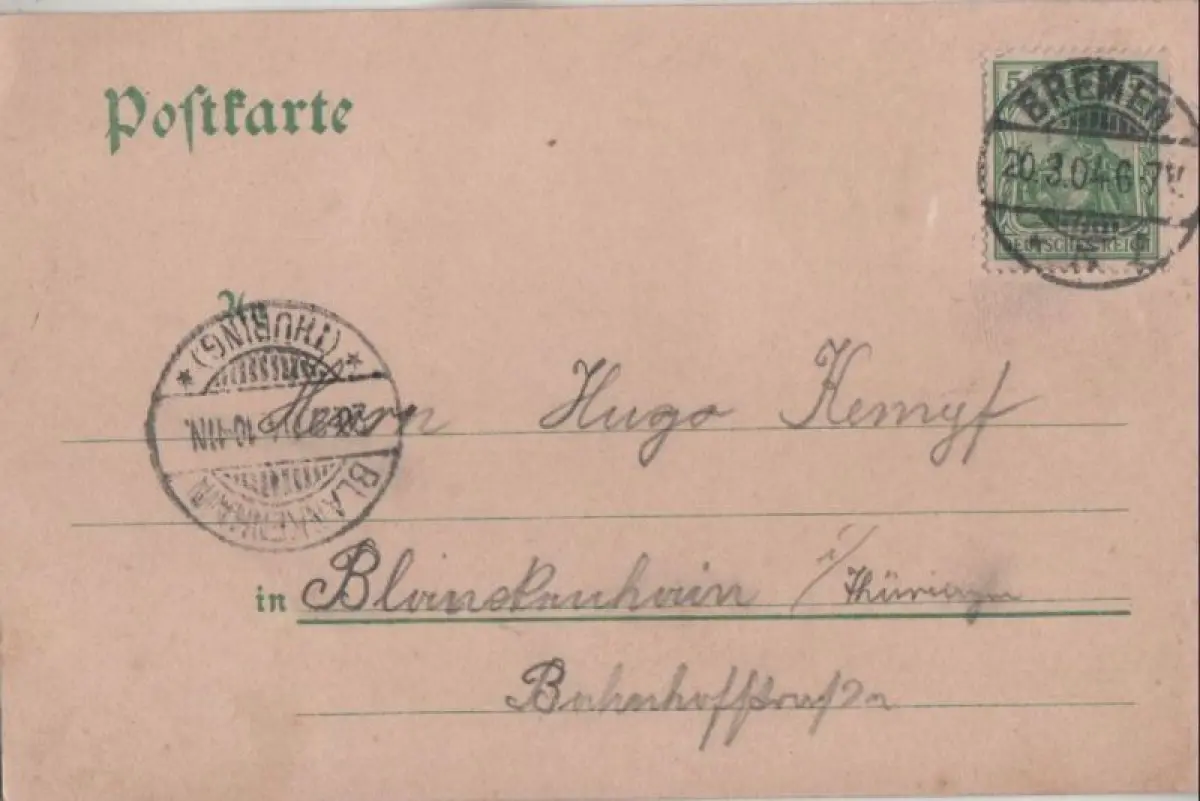 Postkarte
5
DEUTSCHES REICH
BREMEN
20.3.04.6-7V.
An
(THÜRING)
10-11N.
BLANKENHAIN
Herrn Hugo Kempf
in Blankenhain i/Thüringen
Bahnhofstraße